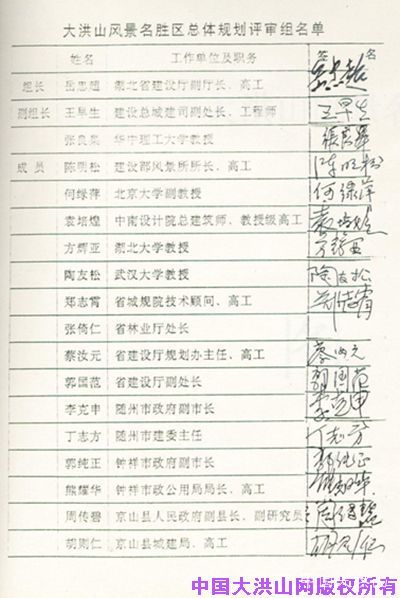 大洪山风景名胜区总体规划评审组名单
姓名 工作单位及职务 签名
组长 岳忠超 湖北省建设厅副厅长、高工
副组长 王早生 建设总城建司副处长、工程师 王早生
张良皋 华中理工大学教授 张良皋
成员 陈明松 建设部风景所所长、高工 陈明松
何绿萍 北京大学副教授 何绿萍
袁培煌 中南设计院总建筑师、教授级高工 袁培煌
方辉亚 湖北大学教授
陶友松 武汉大学教授 陶友松
郑志霄 省城规院技术顾问、高工 郑志霄
张倚仁 省林业厅处长
蔡汝元 省建设厅规划办主任、高工 蔡汝元
郭国范 省建设厅副处长 郭国范
李克申 随州市政府副市长 李克申
丁志方 随州市建委主任 丁志方
郭纯正 钟祥市政府副市长 郭纯正
熊耀华 钟祥市政公用局局长、高工 熊耀华
周传碧 京山县人民政府副县长、副研究员 周传碧
胡则仁 京山县城建局、高工 胡则仁
中国大洪山网版权所有